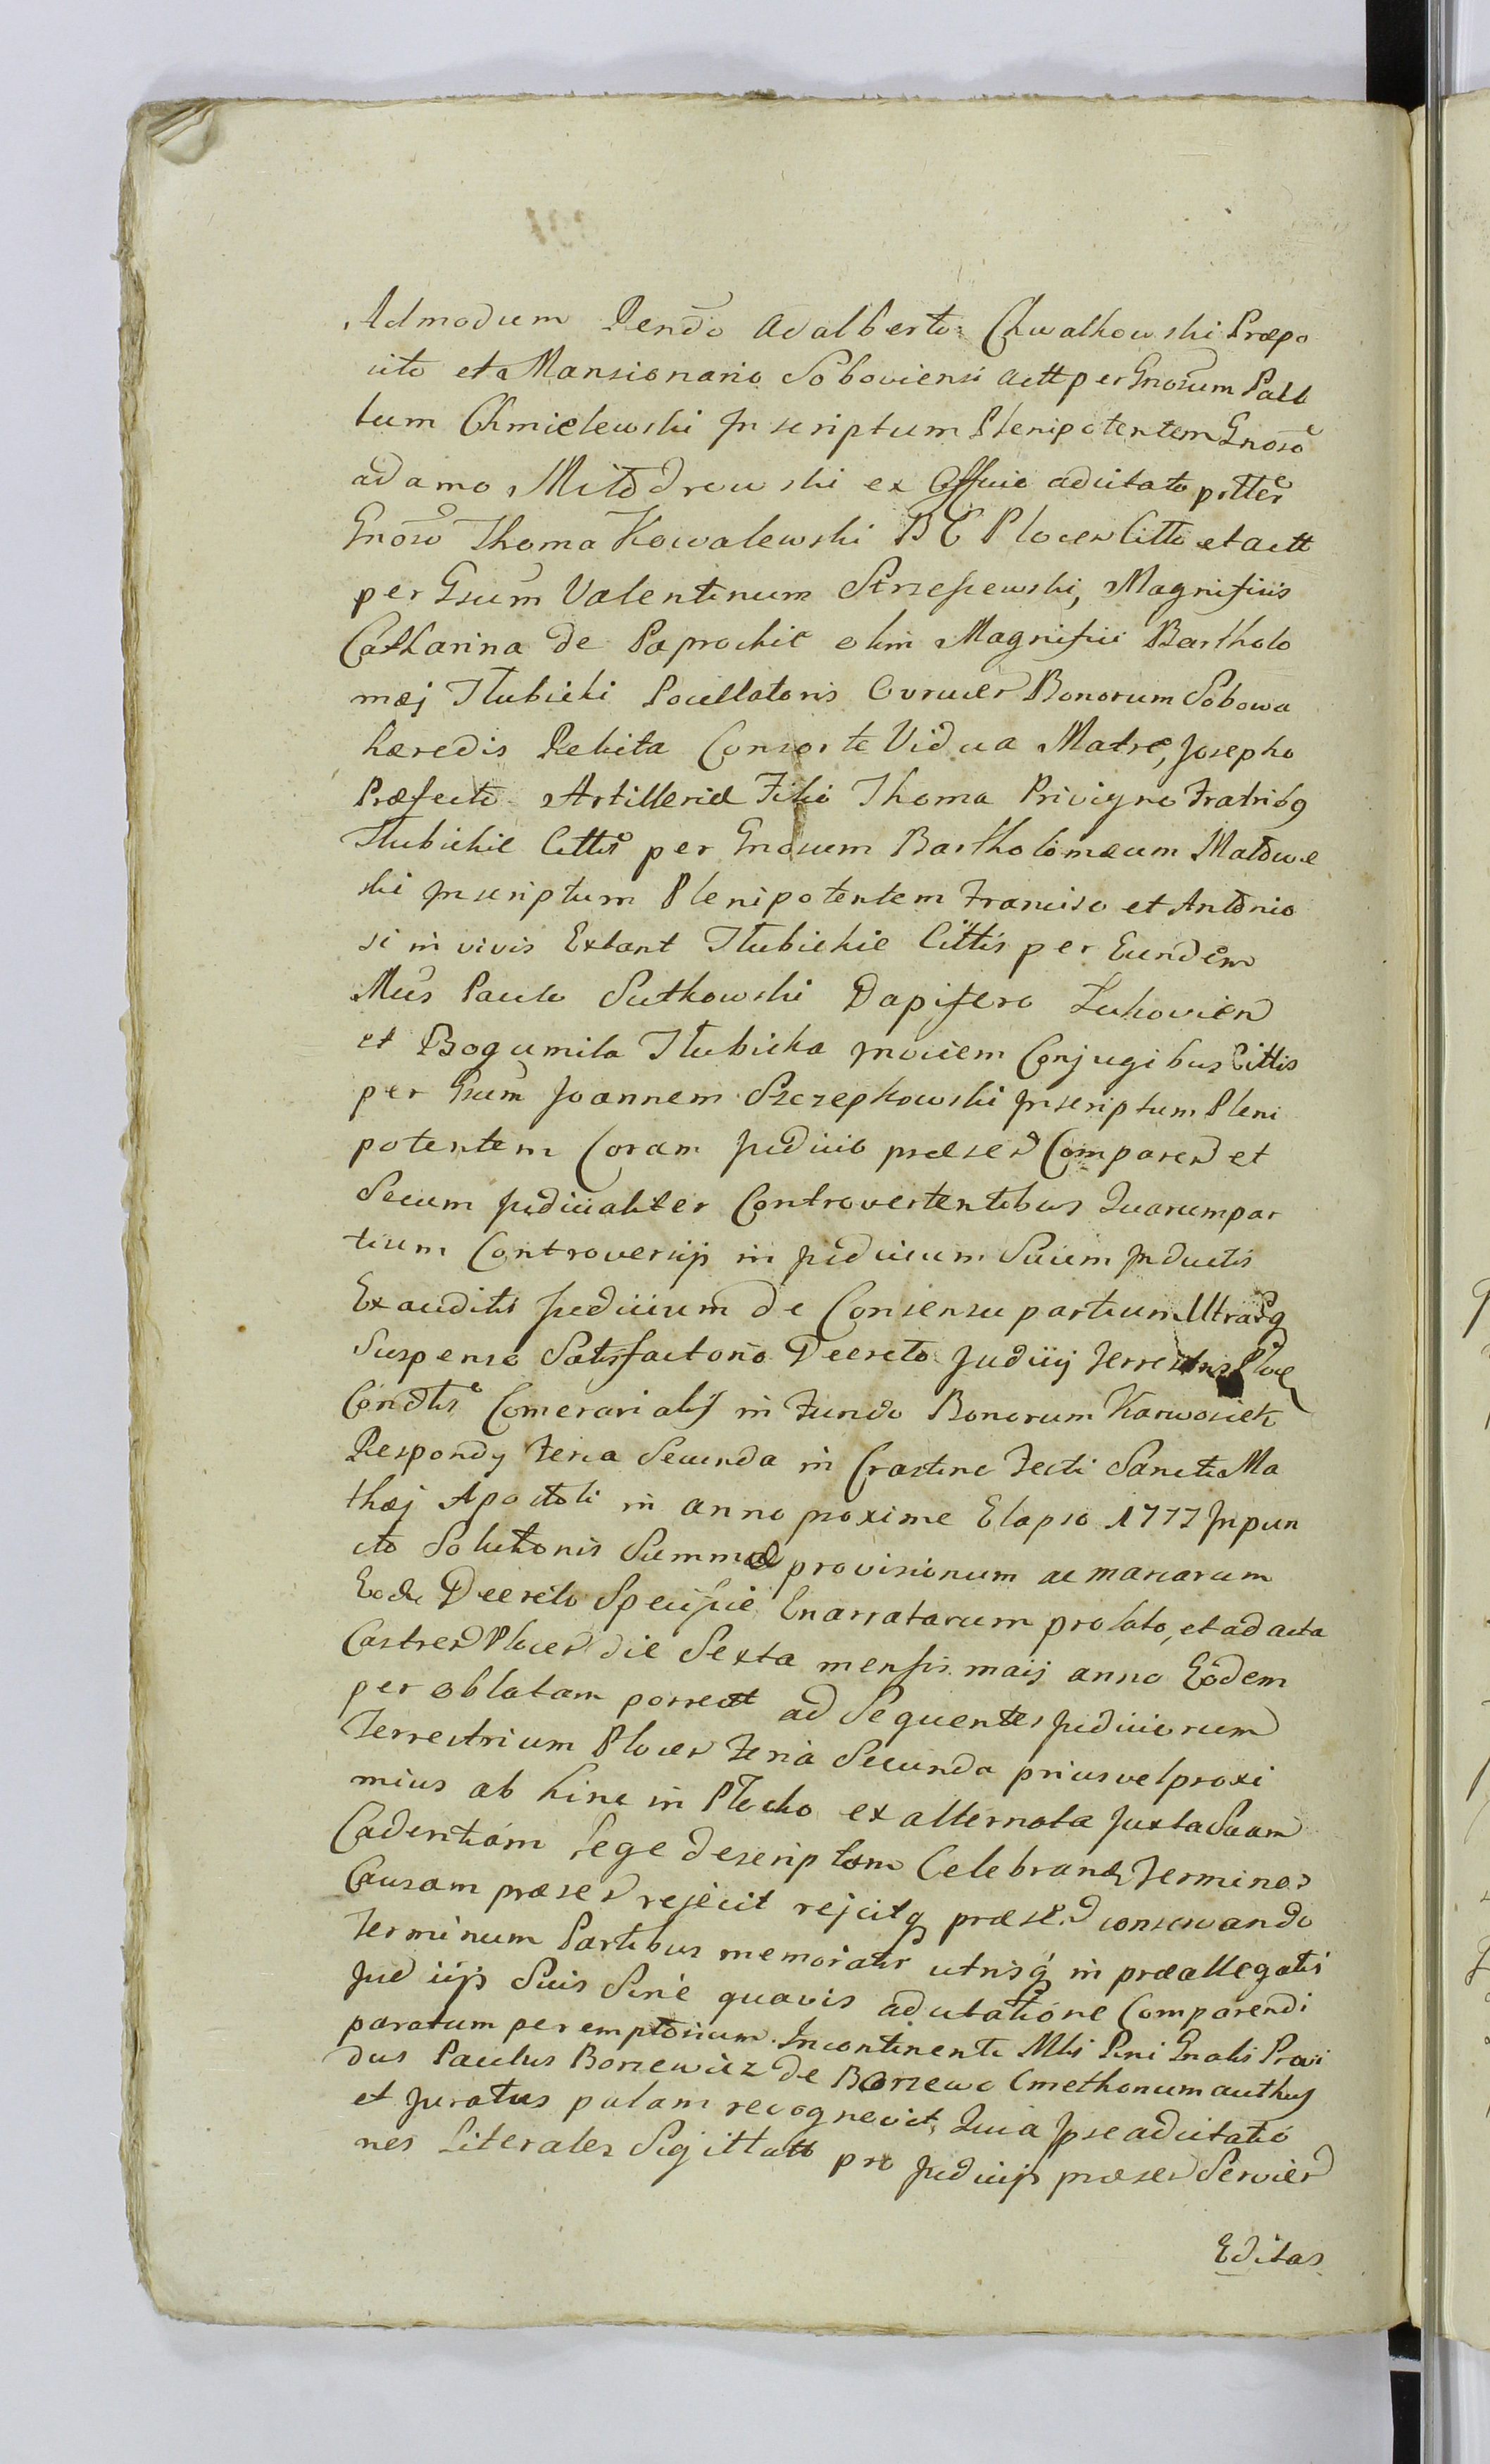 Admodum Rendo Adalberto Chwalkowski Præpo
sito et Mansionario Soboviensi actt per Gnosum Pall
lum Chmielewski Inscriptum Plenipotentem Gnoso
adamo Mitodrowski ex Officio adcitato pttter
Gnoso Thoma Kowalewski B C Plocen Citto et actt
per Gsum Valentinum Strzeszewski, Magnificis
Catharina de Paprockie olim Magnifici Bartholo
mæj Tłubicki Pocillatoris Ovrucen Bonorum Sobowa
hæredis Relicta Consorte Vidua Matre, Josepho
Præfecto Artilleriæ Filio Thoma Privigno Fratribg
Tłubickie Cittis per Gnosum Bartholomæum Małowie
ski Inscriptum Plenipotentem Francisco et Antonio
si in vivis Extant Tłubickie Cittis per Eundem
Mcis Paulo Sutkowski Dapifero Lukovien
et Bogumila Tłubicka Invicem Conjugibus Cittis
per Gsum Joannem Szczepkowski Inscriptum Pleni
potentem Coram Judicio præsen Comparen et
Secum Judicialiter Controvertentibus Quarum par
tium Controversijs in Judicium Suum Inductis
Exauditis Judicium de Consensu partium Utrarq
Suspenso Satisfactorio Decreto Judicij Terrestris Ploc
Condtis Comerarialis in Fundo Bonorum Karwosieki
Respondy Feria Secunda in Crastino Festi Sancti Ma
thæj Apostoli in anno proxime Elapso 1777 In pun
cto Solutionis Summæ provisionum ac marcarum
Eode Decreto Specifice Enarratarum prolato, et ad acta
Castren Plocen die Sexta mensis maij anno Eodem
per oblatam porrect ad Sequentes Judiciorum
Terrestrium Plocen Feria Secunda prius vel proxi
mius ab hinc in Płocko ex alternata Juxta Suam
Cadentiam Lege descriptam Celebrand Terminos
Causam præsen rejecit rejcitq præsend conservando
Terminum Partibus memoratis utrisq in præallegatis
Judicijs Suis Sine quavis adcitatione Comparendi
paratum peremptorium. Incontinenti Mtis Rni Gnalis Provi
dus Paulus Borzewicz de Borzewo Cmethonum authus
et Juratus palam recognovit, Quia Ipse adcitatio
nes Literales Sigillatt pro Judicijs præsen Servien
Editas